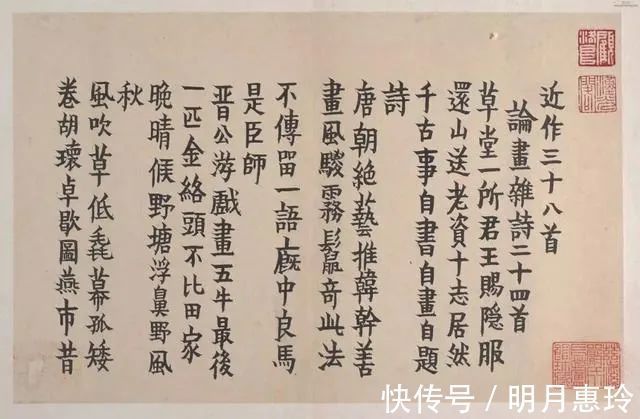 近作三十八首
論畫雜詩二十四首
草堂一所君王賜隱服
還山送老資十志居然
千古事自書自畫自題
詩
唐朝絕藝推韓幹善
畫風駿霧鬣奇此法
不傳留一語廄中良馬
是臣師
晋公游戲畫五牛最後
一匹金絡頭不比田家
晚晴候野塘浮鼻野風
秋
風吹草低毳幕孤矮
卷胡瓌卓歇圖燕市昔
快传号／明月惠玲